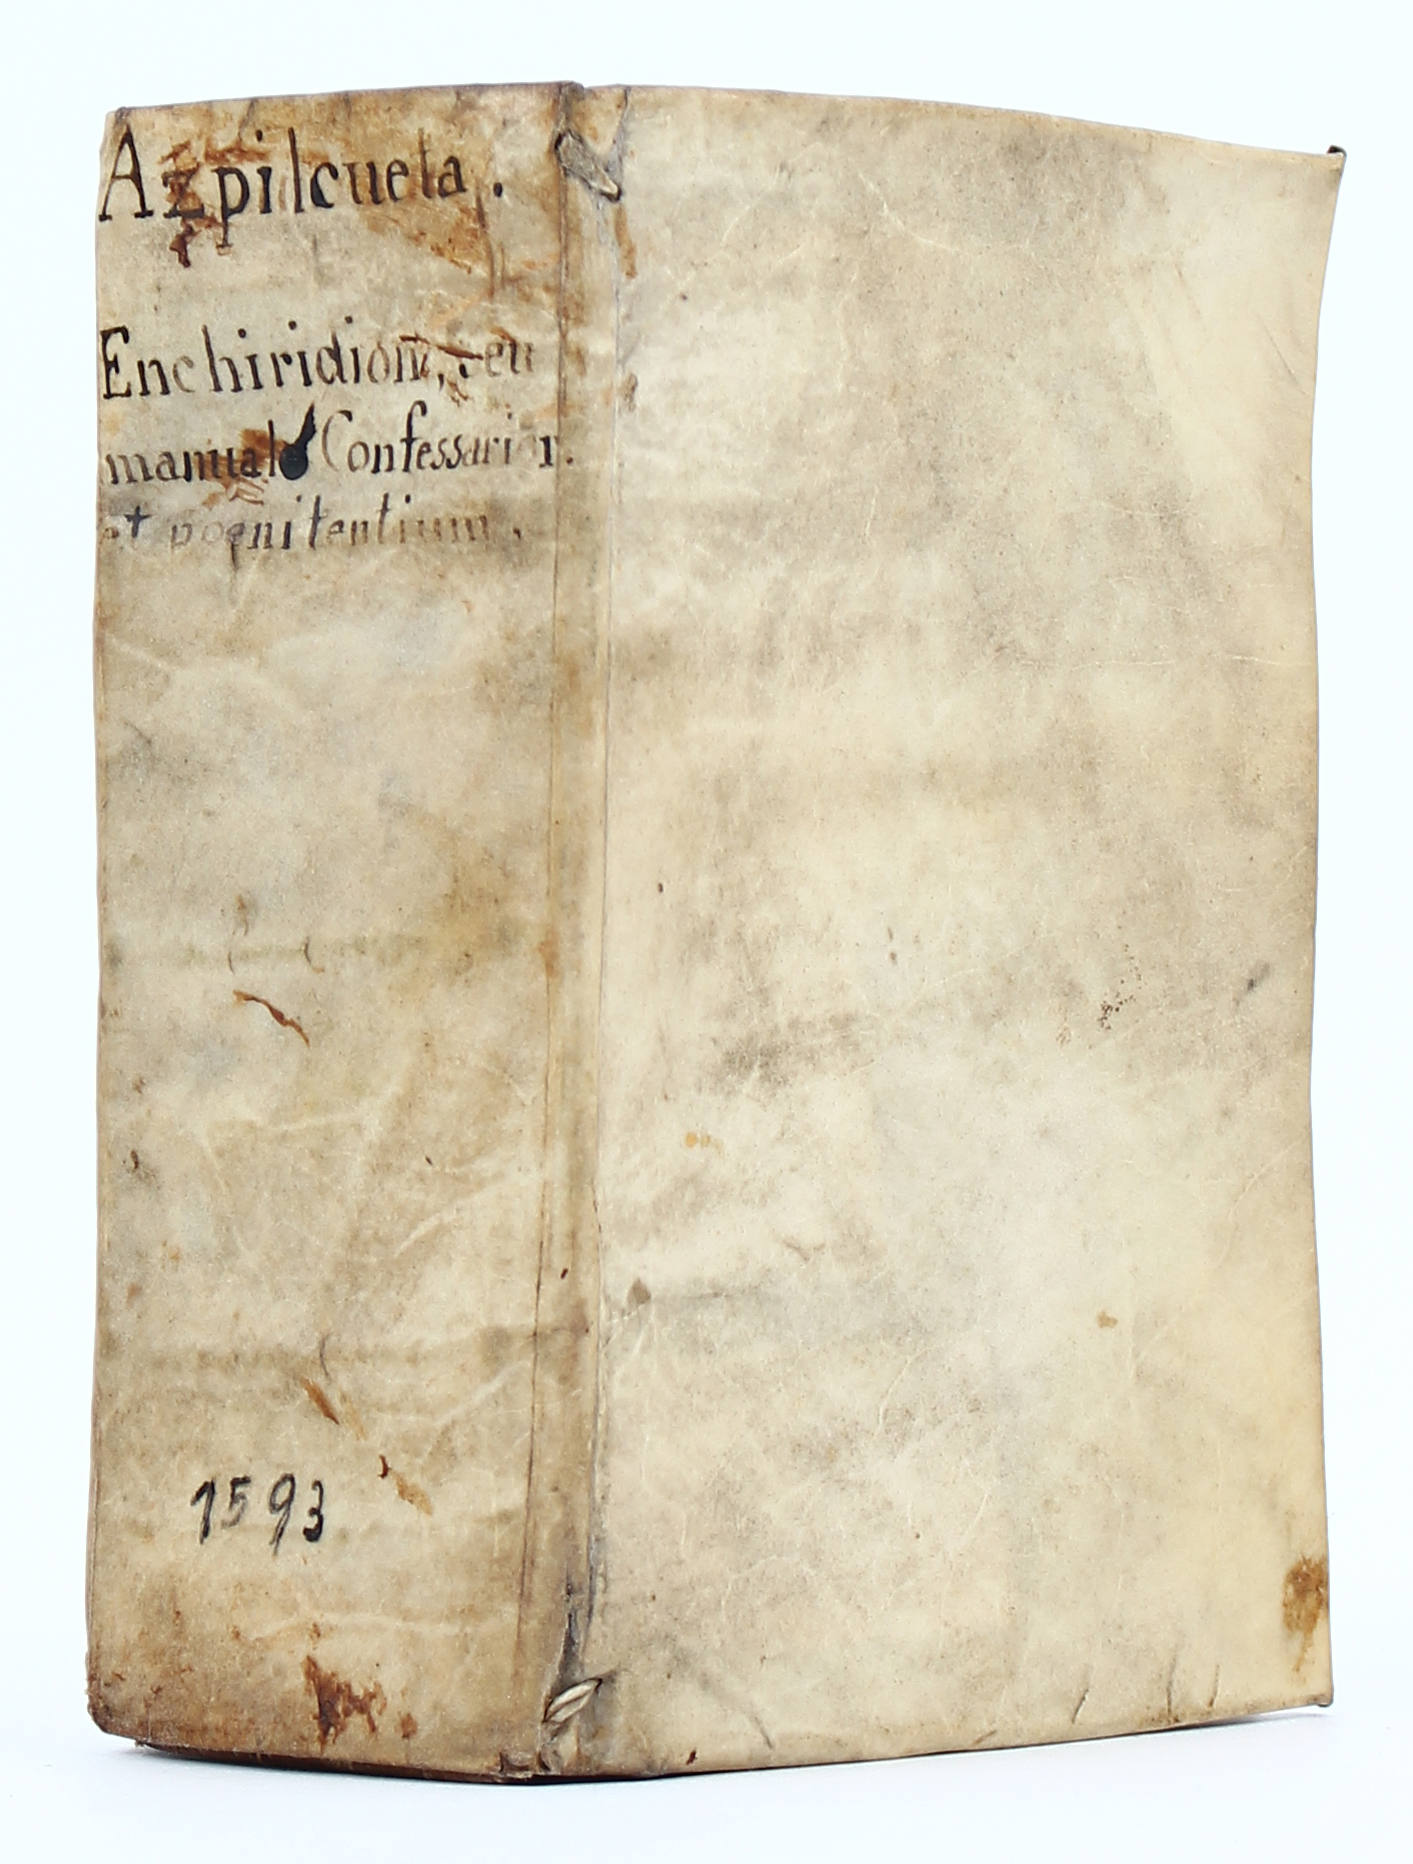 Azpilcueta.
Enchiridion, seu
manuale Confessarior.
et poenitentium.
1593